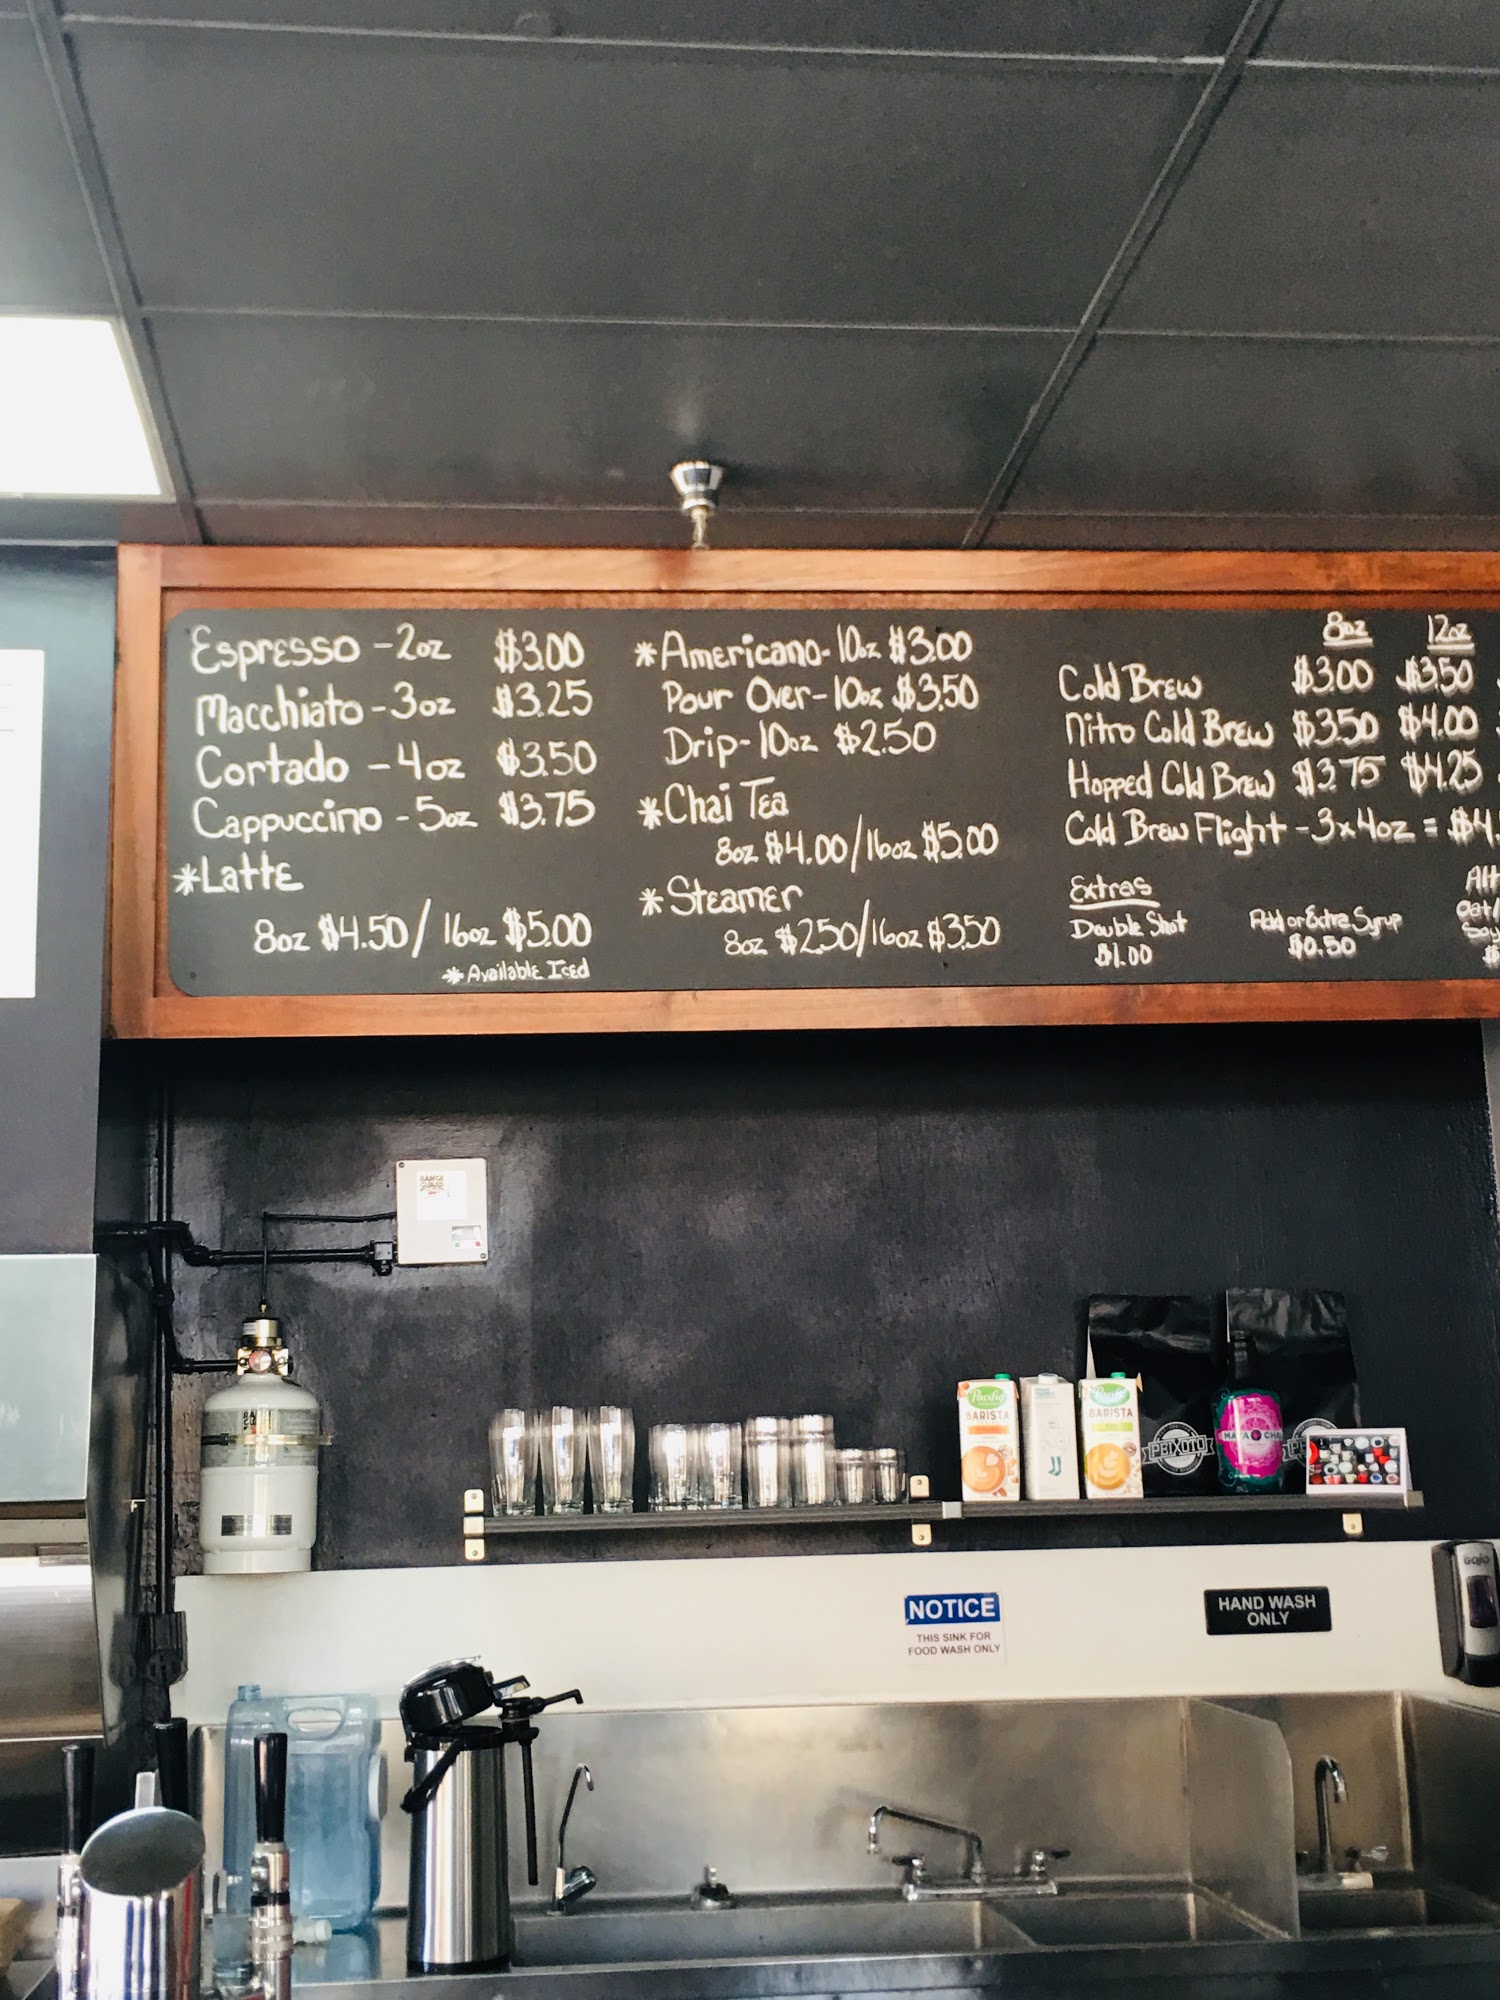 Espresso - 2oz $3.00
Macchiato - 3oz $3.25
Cortado - 4oz $3.50
Cappuccino - 5oz $3.75
*Latte
8oz $4.50/16oz $5.00
*Available Iced
*Americano- 10oz $3.00
Pour Over- 10oz $3.50
Drip- 10oz $2.50
*Chai Tea
8oz $4.00/16oz $5.00
*Steamer
8oz $2.50/16oz $3.50
8oz 12oz
Cold Brew $3.00 $3.50
Nitro Cold Brew $3.50 $4.00
Hopped Cold Brew $3.75 $4.25
Cold Brew Flight - 3x4oz = $4.
Extras
Double Shot
$1.00
Add or Extra Syrup
$0.50
Alt
oat/
Soy
$
RANGE
GUARD
Pacific
BARISTA
Pacific
BARISTA
PEIXOTO
MAYA CHAI
PE
NOTICE
THIS SINK FOR
FOOD WASH ONLY
HAND WASH
ONLY
GOJO